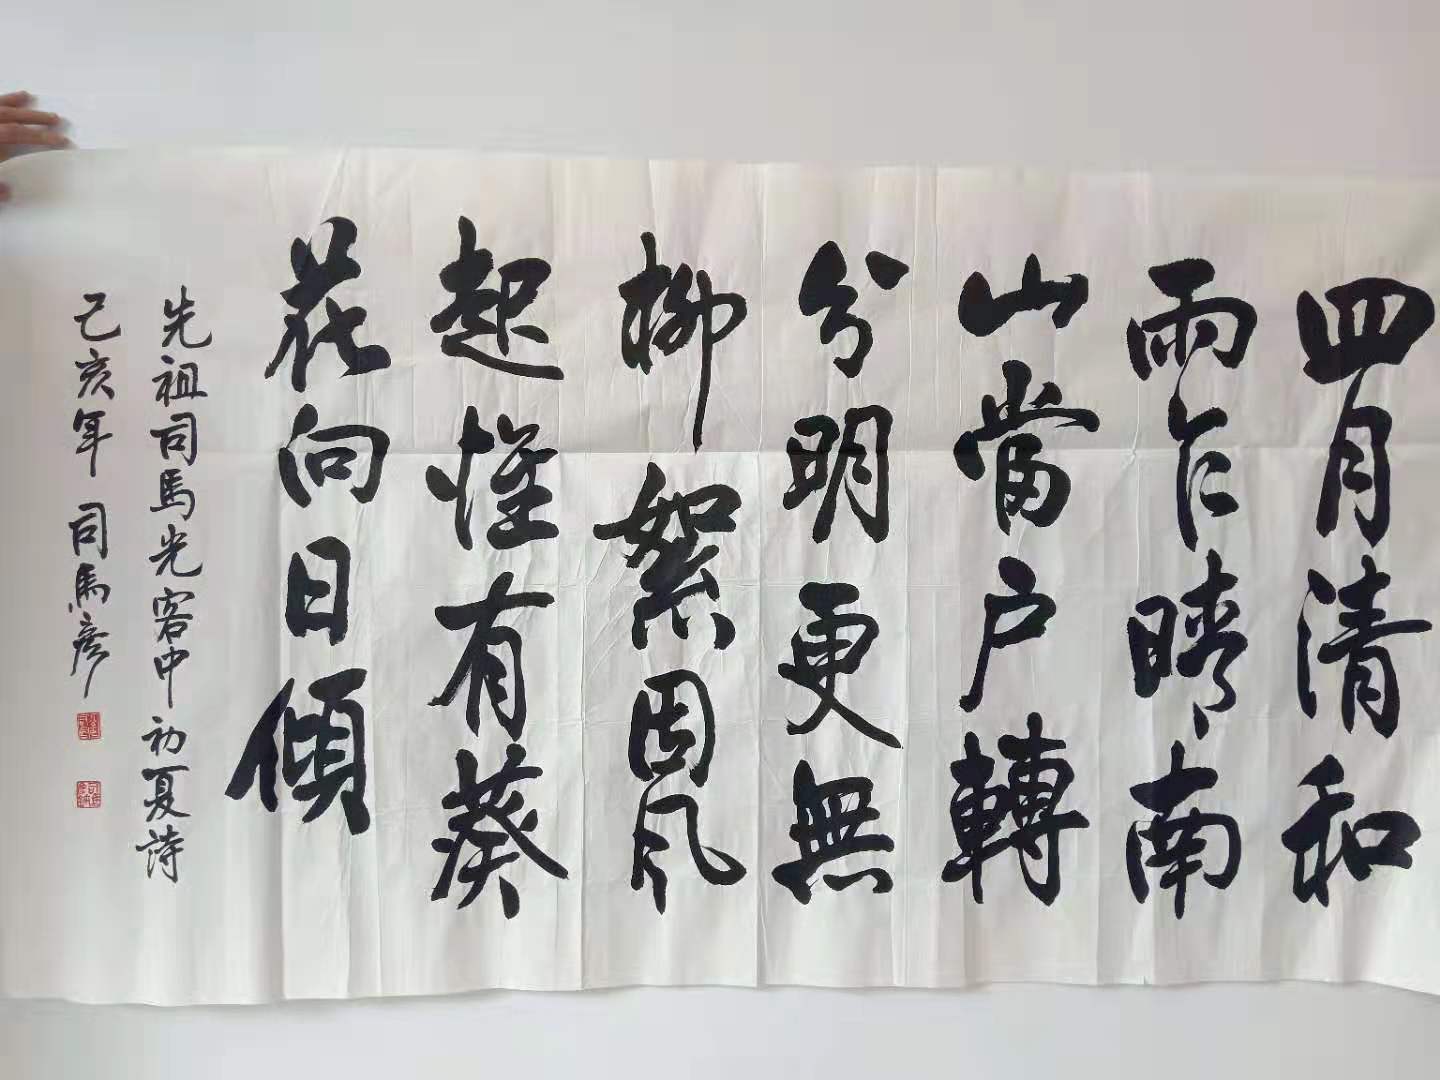 四月清和
雨乍晴南
山當户轉
分明更無
柳絮因风
起惟有葵
花向日傾
先祖司馬光客中初夏詩
己亥年 司馬彦